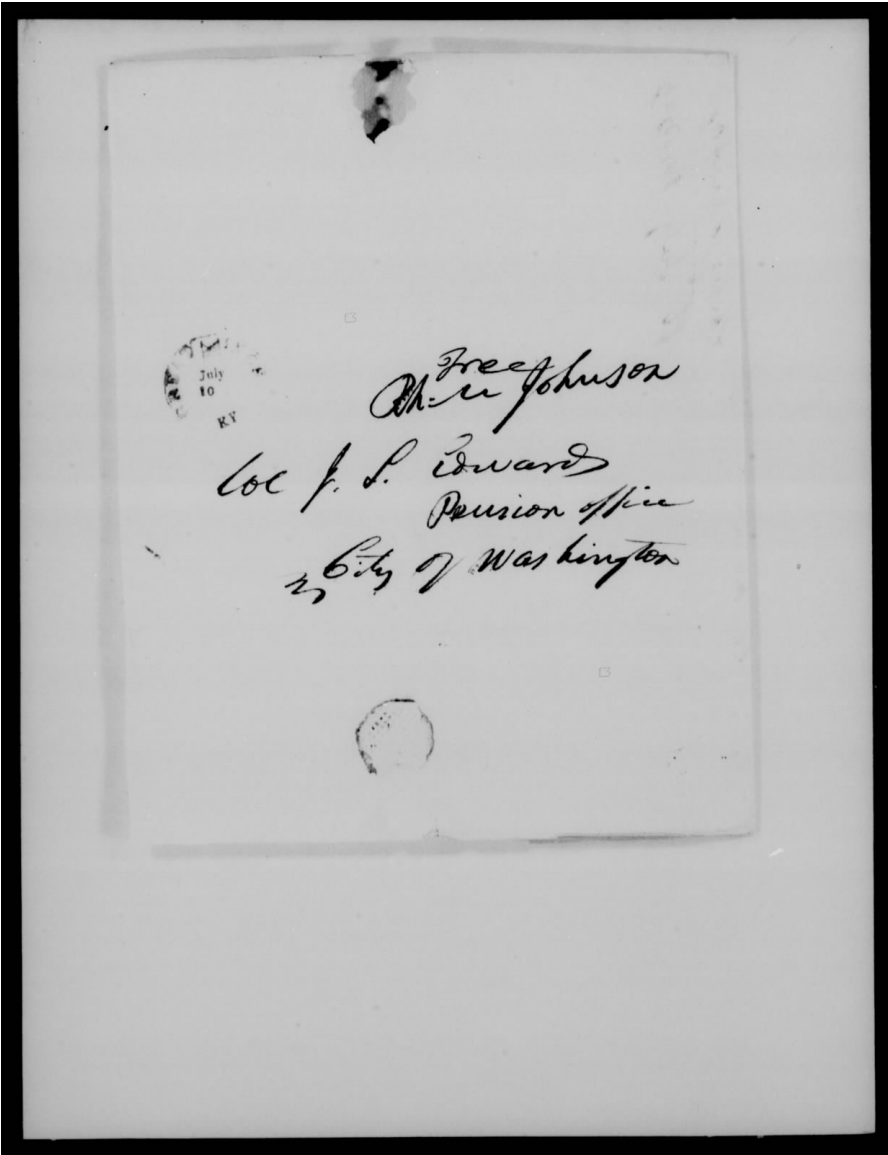 July
10
KY
Free
Rh: M Johnson
Col J. L. Edwards
Pension office
City of Washington